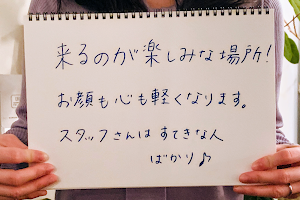 来るのが楽しみな場所!
お顔も心も軽くなります。
スタッフさんは すてきな人
ばかり♪